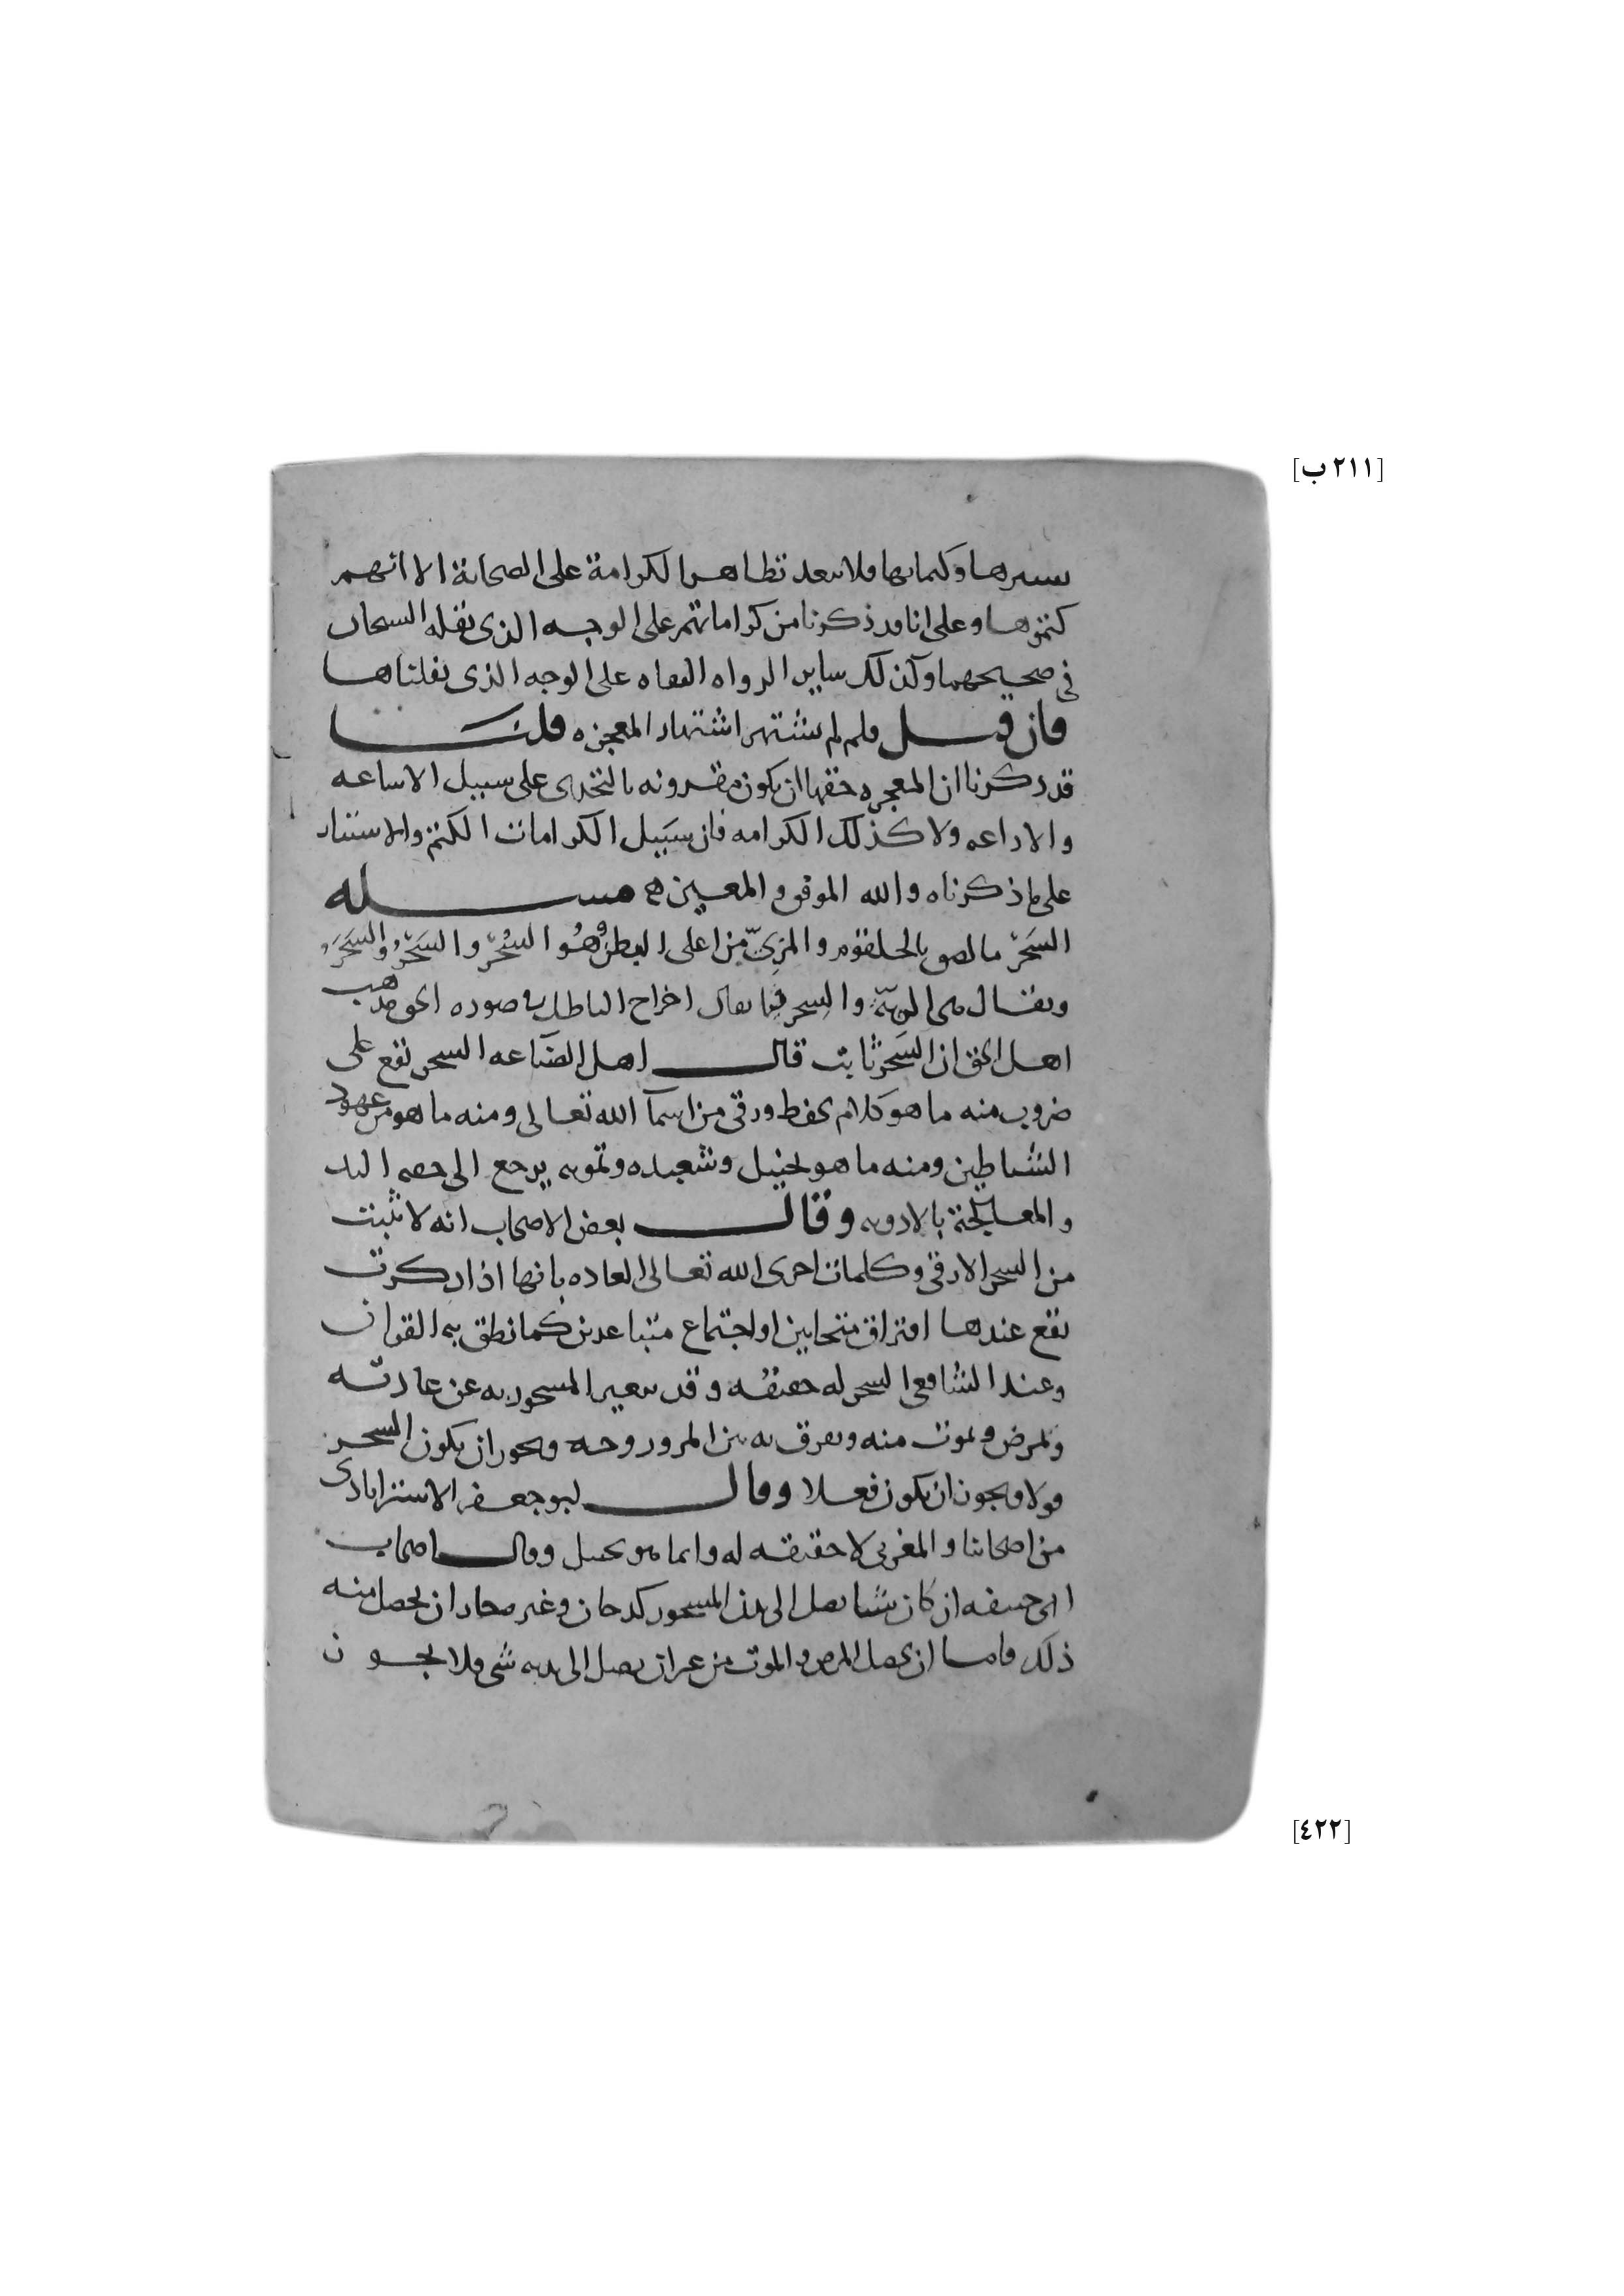 [٢١١ ب]
سترها وكتمانها فلا يبعد تظاهر الكرامة على الصحابة الا انهم
كتموها وعلى انا قد ذكرنا من كراماتهم على الوجه الذي نقله الشيخان
في صحيحهما وكذلك ساير الرواه الثقاه على الوجه الذي نقلناها
فان قيل فلم لم يشتهر اشتهار المعجزه قلنا
قد ذكرنا ان المعجزه حقها ان يكون مقرونه بالتحدي على سبيل الاشاعه
والاذاعه ولا كذلك الكرامه فان سبيل الكرامات الكتم والاستتار
على ما ذكرناه والله الموفق والمعين مسله
السَحْر ما لصق بالحلقوم والمرِيّ من اعلى البطن وهُو السُحْر والسَحْر والسَحَر
ويقال هي الرية والسِحر فيما يقال اخراج الباطل في صوره الحق مذهب
اهل الحق ان السحر ثابت قال اهل الصناعه السحر يقع على
ضروب منه ما هو كلام يحفظ ورقى من اسمآ الله تعالى ومنه ما هو من عهود
الشياطين ومنه ما هو تخييل وشعبده وتمويه يرجع الى خفه اليد
والمعالجة بالادويه وقال بعض الاصحاب انه لا يثبت
من السحر الا رقى وكلمات اجرى الله تعالى العاده بانها اذا ذكرت
يقع عندها افتراق متحابين او اجتماع متباعدين كما نطق به القران
وعند الشافعي السحر له حقيقه وقد يتغير المسحور به عن عادته
ويمرض ويموت منه ويفرق به بين المرء وزوجه ويجوز ان يكون السحر
قولا ويجوز ان يكون فعلا وقال ابو جعفر الاستراباذي
من اصحابنا والمغربي لا حقيقه له وانما هو تخييل وقال اصحاب
ابي حنيفه ان كان شيا يصل الى بدن المسحور كدخان وغيره جاز ان يحصل منه
ذلك فاما ان يحصل المرض والموت من غير ان يصل الى بدنه شي فلا يجوز
[٤٢٢]